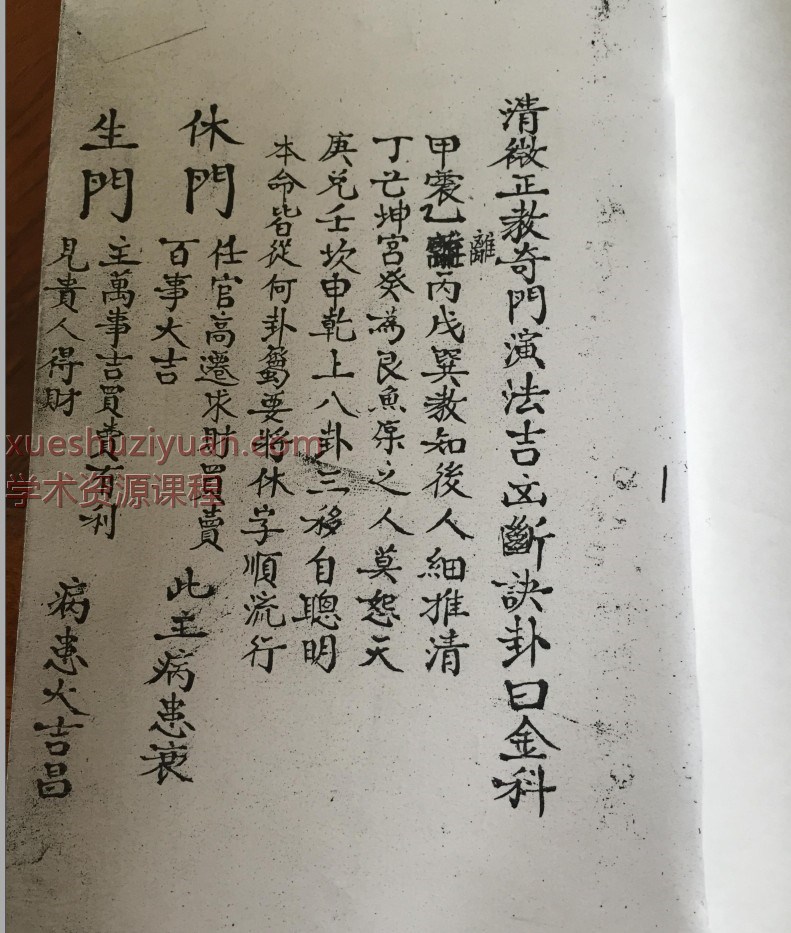 清微正教奇門演法吉凶斷訣卦曰金科
甲震乙離丙戌巽教知後人細推清
離
丁亡坤宮癸為良魚深之人莫怨天
庚兌壬坎申乾上八卦三移自聰明
本命皆從何卦屬要將休字順流行
休門
任官高遷求財買賣
百事大吉
此主病患衰
生門
主萬事吉買賣有利
見貴人得財
病患大吉昌
1
xueshuziyuan.com
学术资源课程